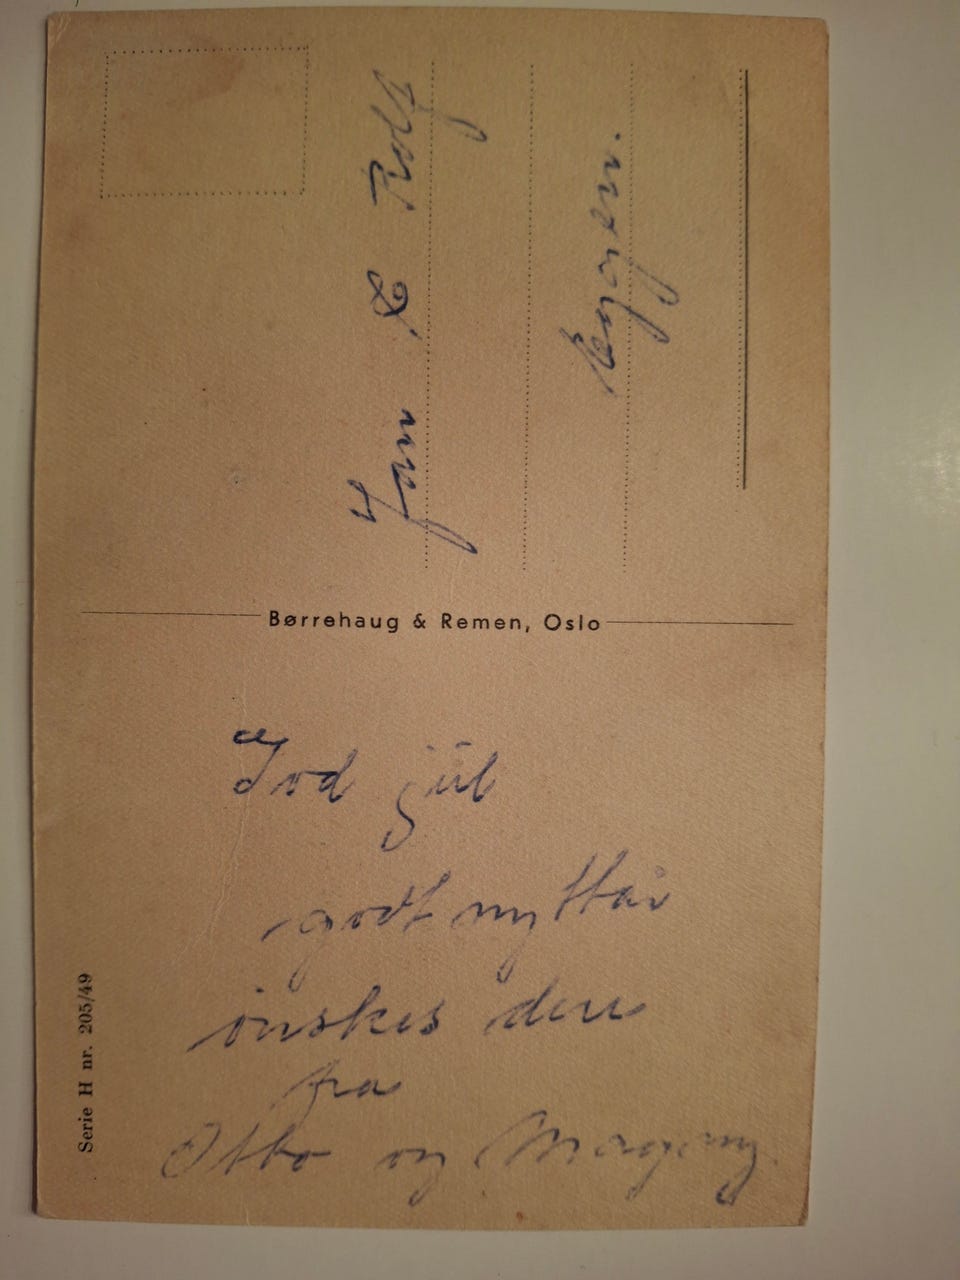 Fam. D Rolf
Børrehaug & Remen, Oslo
God jul
godt nyttår
ønskes dere
fra
Otto og
Serie H nr. 205/49